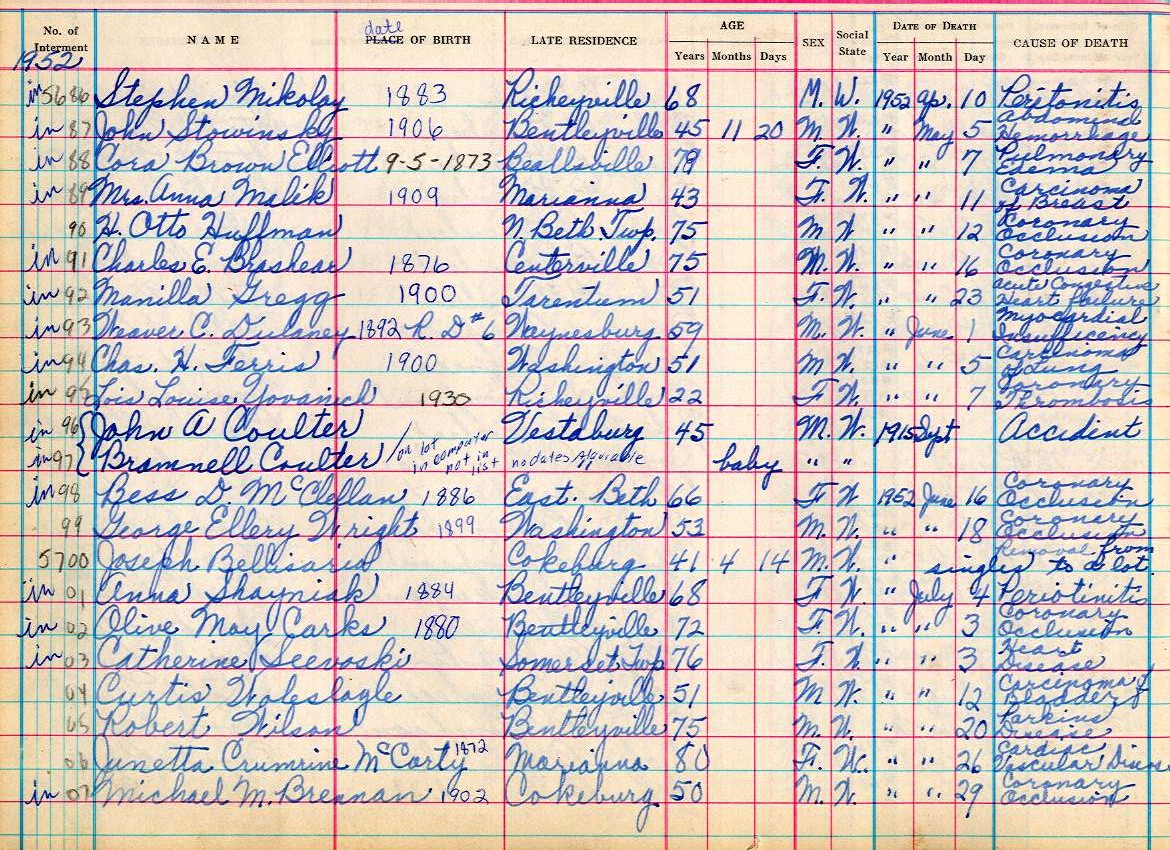 No. of Interment NAME date PLACE OF BIRTH LATE RESIDENCE AGE Years Months Days SEX Social State DATE OF DEATH Year Month Day CAUSE OF DEATH
1952
in 5686 Stephen Mikolay 1883 Richeyville 68 M. W. 1952 Ap. 10 Peritonitis
in 87 John Stowinsky 1906 Bentleyville 45 11 20 M. W. " May 5 Abdominal Hemorrhage
in 88 Cora Brown Elliott 9-5-1873 Beallsville 79 F. W. " " 7 Pulmonary Edema
in 89 Mrs. Anna Malik 1909 Marianna 43 F. W. " " 11 Carcinoma of Breast
90 H. Otto Huffman N. Beth. Twp. 75 M W " " 12 Coronary Occlusion
in 91 Charles E. Brashear 1876 Centerville 75 M. W. " " 16 Coronary Occlusion
in 92 Manilla Gregg 1900 Tarentum 51 F. W. " " 23 acute Congestive Heart Failure
in 93 Weaver C. Dulaney 1892 R. D # 6 Waynesburg 59 M. W. " June 1 Myocardial Insufficency
in 94 Chas. H. Ferris 1900 Washington 51 M W. " " 5 Carcinoma of Lung
in 95 Lois Louise Yovanich 1930 Richeyville 22 F W. " " 7 Coronary Thrombosis
in 96 John A Coulter Vestaburg 45 M. W. 1915 Sept Accident
in 97 Bramnell Coulter on lot in computer not in list no dates Available baby " "
in 98 Bess D. McClellan 1886 East. Beth 66 F W 1952 June 16 Coronary Occlusion
99 George Ellery Wright 1899 Washington 53 M. W. " " 18 Coronary Occlusion
5700 Joseph Bellisario Cokeburg 41 4 14 M. W. " Removal from singles to a lot.
in 01 Anna Shayniak 1884 Bentleyville 68 F W. " July 4 Periotinitis
in 02 Olive May Carks 1880 Bentleyville 72 F. W. " " 3 Coronary Occlusion
in 03 Catherine Seevoski Somerset Twp 76 F. W. " " 3 Heart Disease
04 Curtis Woleslagle Bentleyville 51 M W. " " 12 Carcinoma of Bladder
05 Robert Wilson Bentleyville 75 M. W. " " 20 Disease
06 Junetta Crumrine McCarty 1872 Marianna 80 F. W. " " 26 Cardiac Vascular
in 07 Michael M. Brennan 1902 Cokeburg 50 M. W. " " 29 Coronary Occlusion